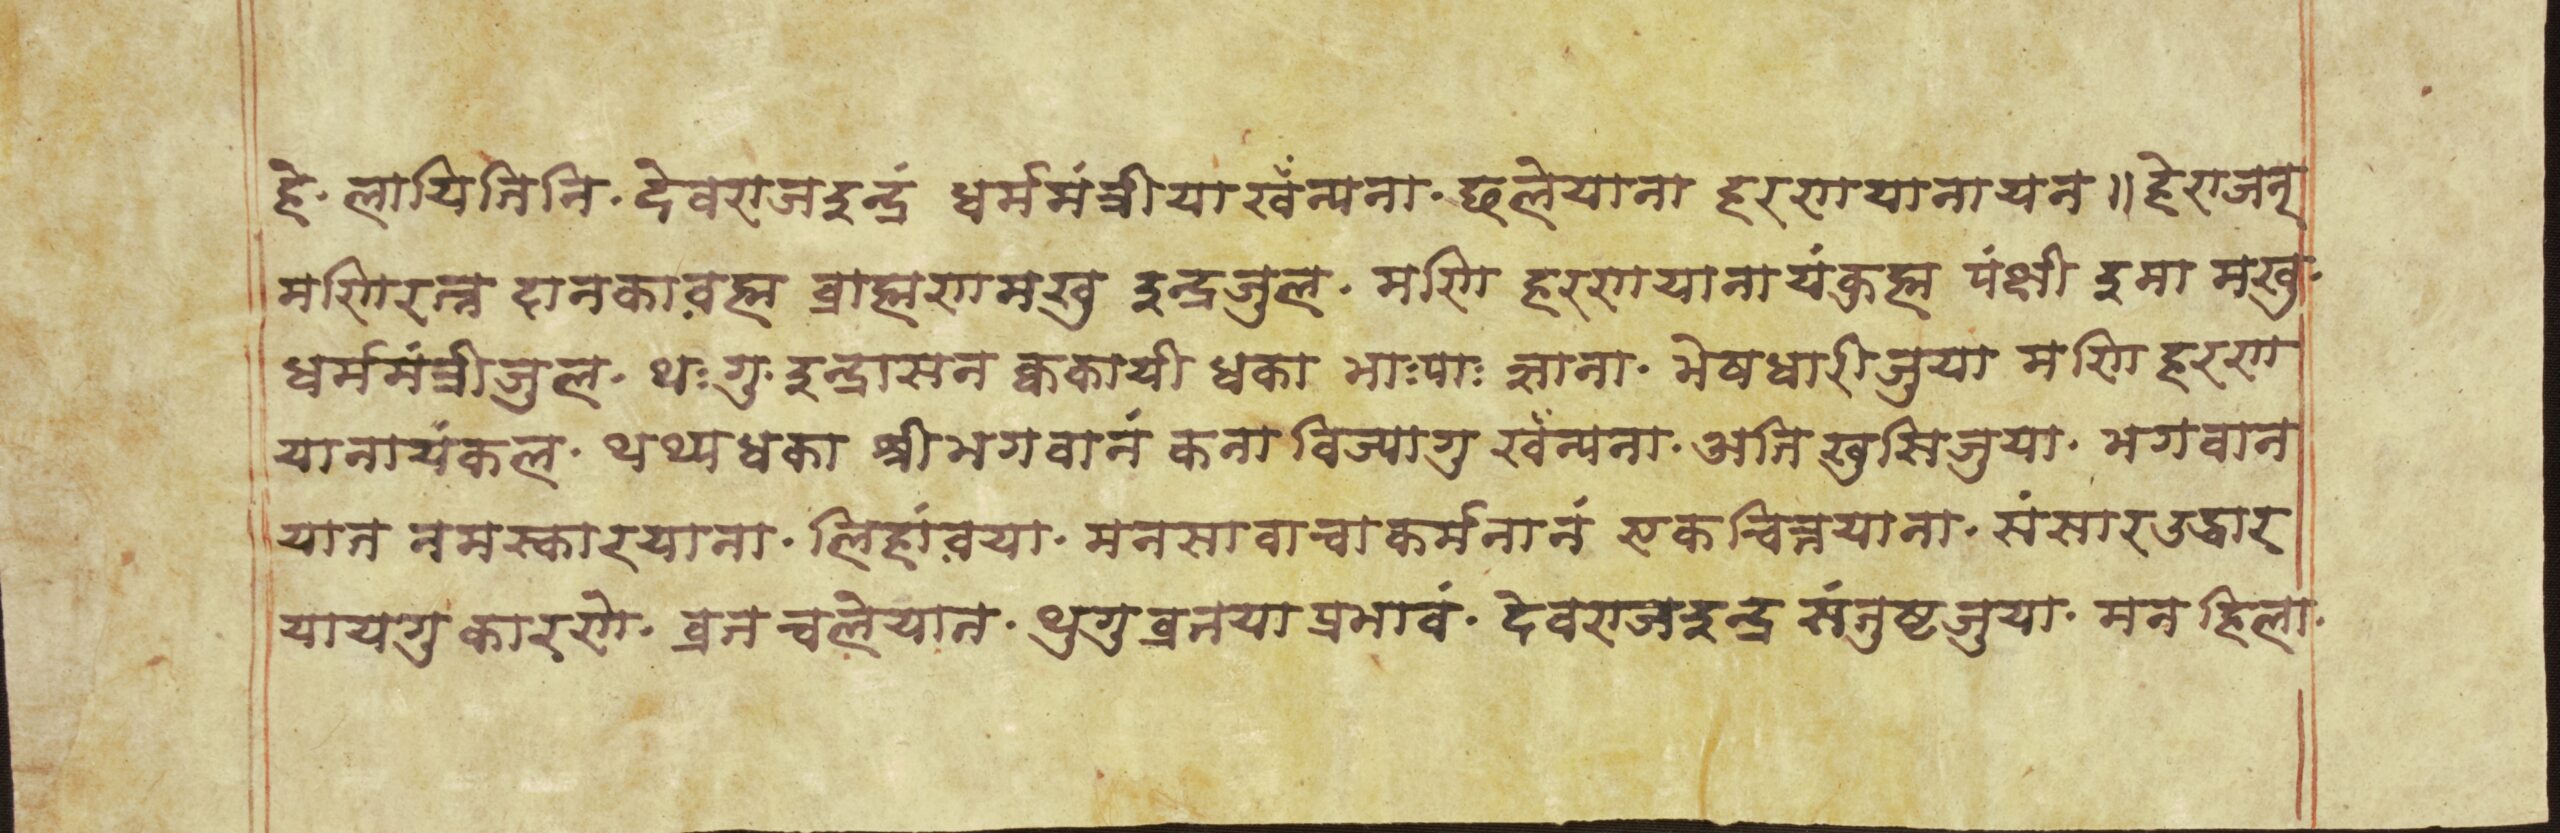 हे· लायितिनि· देवराजइन्द्रं धर्ममंत्रीया खँन्यना· छलेयाना हरणयानायन॥ हेराजन्
मणिरत्न दानकाव़ह्म ब्राह्मणमखु इन्द्रजुल· मणि हरणयानायंकुह्म पंक्षी इमा मखु·
धर्ममंत्रीजुल· थःगु· इन्द्रासन क्वकायी धका भाःपाः ञाना· भेषधारीजुया मणि हरण
यानायंकल· थथ्यधका श्रीभगवानं कना विज्यागु खँन्यना· अति खुसिजुया· भगवान
यात नमस्कारयाना· लिहांव़या· मनसावाचाकर्मनानं एकचित्तयाना· संसारउद्धार
यायगु कारणे· व्रतचलेयात· थुगु व्रतया प्रभावं· देवराजइन्द्र संतुष्टजुया· मन हिला·